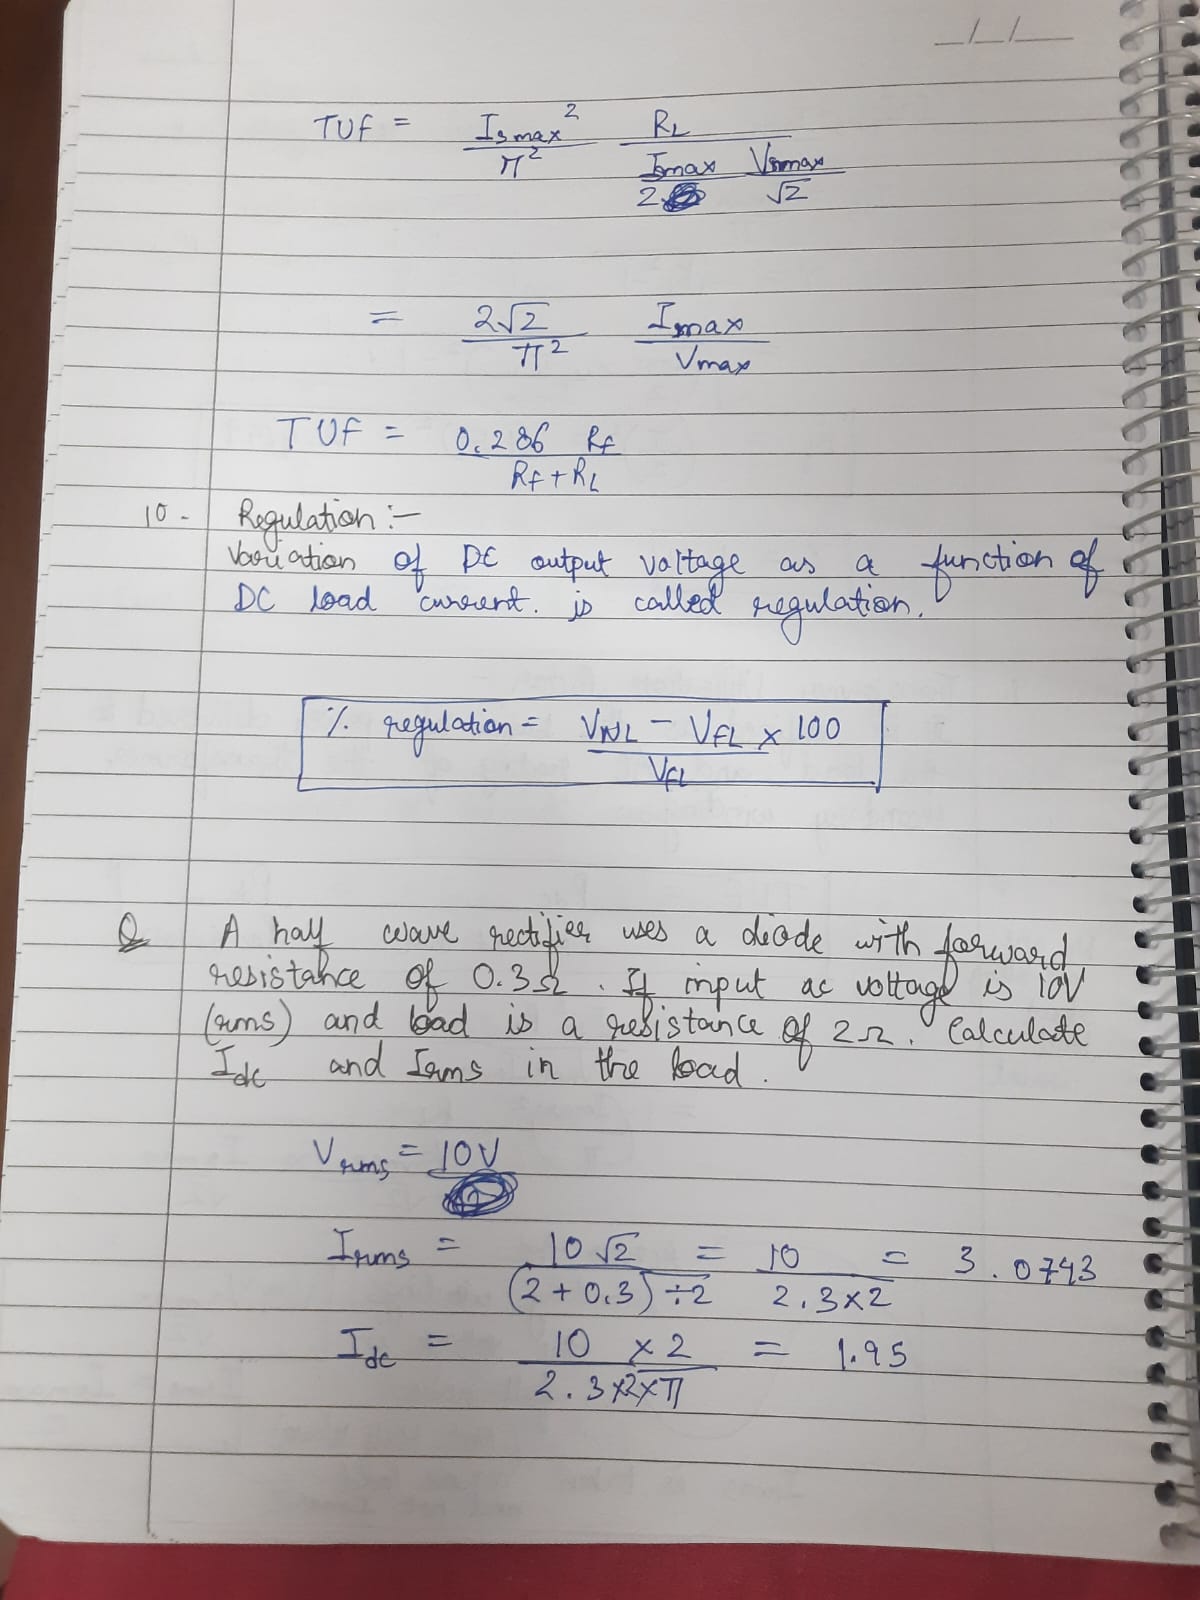 _/_/__
TUF = Ismax² RL
π² Ismax Vsmax
2 √2
= 2√2 Imax
π² Vmax
TUF = 0.286 Rf
Rf + RL
10- Regulation :-
Variation of DC output voltage as a function of
DC load current. is called regulation.
% regulation = VNL - VFL x 100
VFL
Q A half wave rectifier uses a diode with forward
resistance of 0.3Ω. If input ac voltage is 10V
(rms) and load is a resistance of 2Ω. Calculate
Idc and Irms in the load.
Vrms = 10V
Irms = 10√2 = 10 = 3.0743
(2 + 0.3) ÷ 2 2.3x2
Idc = 10 x 2 = 1.95
2.3x2xπ